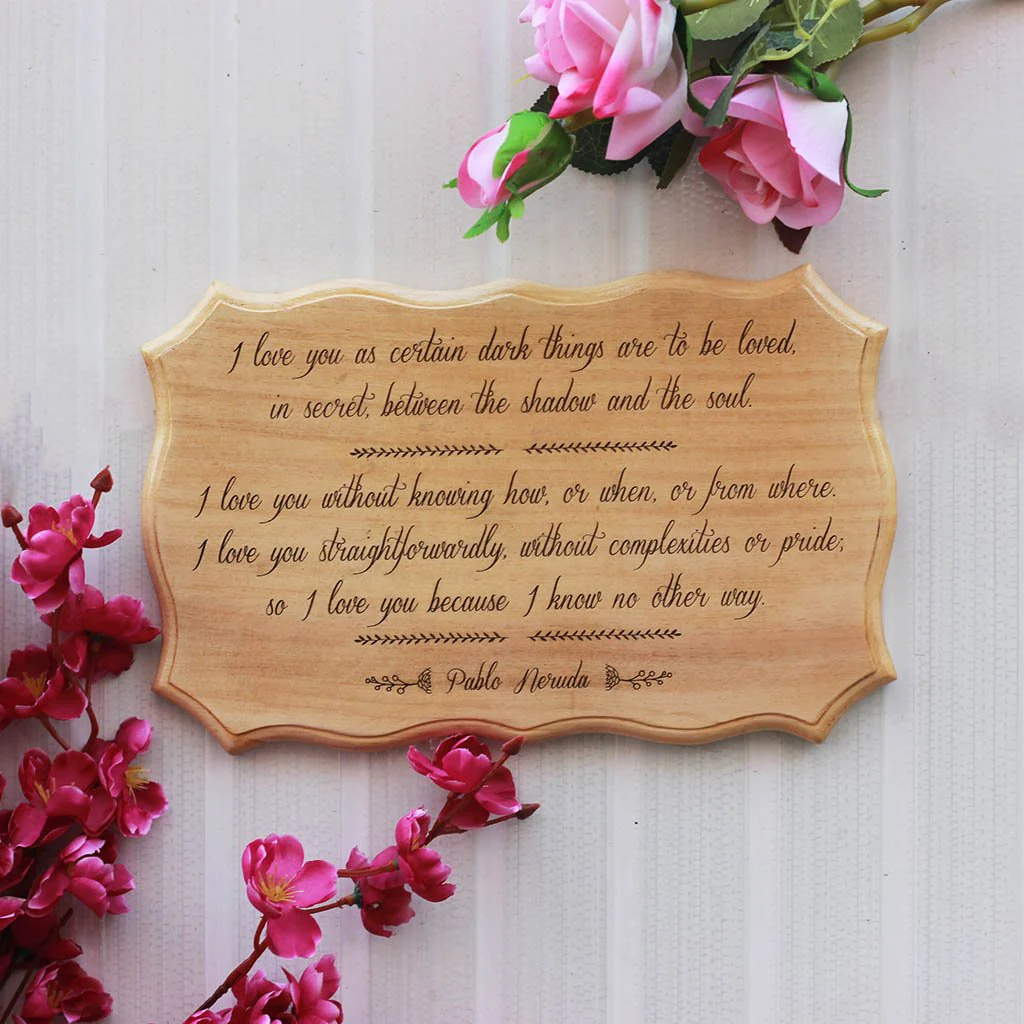 I love you as certain dark things are to be loved,
in secret, between the shadow and the soul.
I love you without knowing how, or when, or from where.
I love you straightforwardly, without complexities or pride;
so I love you because I know no other way.
Pablo Neruda